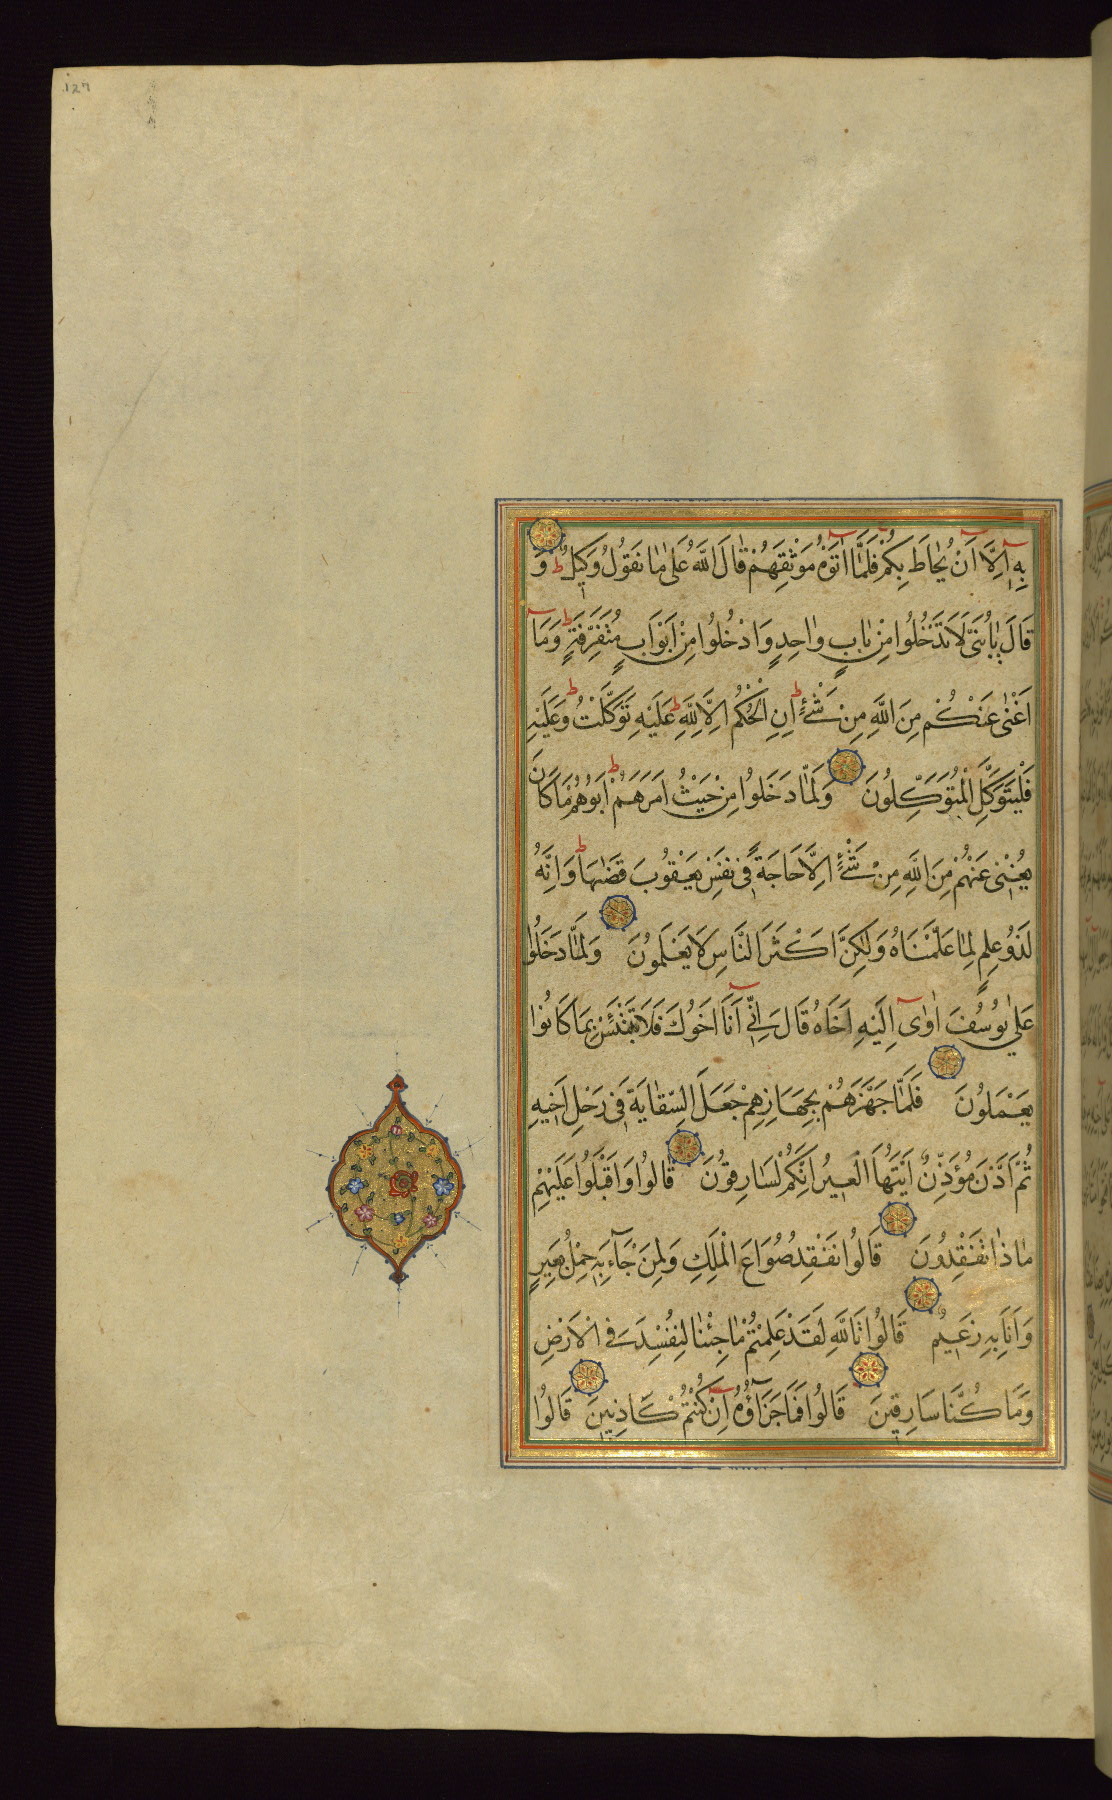 بِهٖ اِلَّا اَنْ يُحَاطَ بِكُمْ فَلَمَّا اٰتَوْهُ مَوْثِقَهُمْ قَالَ اللّٰهُ عَلٰى مَا نَقُولُ وَكِيلٌ ط وَ
قَالَ يَابُنَىَّ لَا تَدْخُلُوا مِنْ بَابٍ وَاحِدٍ وَادْخُلُوا مِنْ اَبْوَابٍ مُتَفَرِّقَةٍ ط وَمَا
اُغْنٖى عَنْكُمْ مِنَ اللّٰهِ مِنْ شَىْءٍ ط اِنِ الْحُكْمُ اِلَّا لِلّٰهِ ط عَلَيْهِ تَوَكَّلْتُ ط وَعَلَيْهِ
فَلْيَتَوَكَّلِ الْمُتَوَكِّلُونَ وَلَمَّا دَخَلُوا مِنْ حَيْثُ اَمَرَهُمْ ط اَبُوهُمْ مَا كَانَ
يُغْنٖى عَنْهُمْ مِنَ اللّٰهِ مِنْ شَىْءٍ اِلَّا حَاجَةً فٖى نَفْسِ يَعْقُوبَ قَضٰيهَا ط وَاِنَّهُ
لَذُو عِلْمٍ لِمَا عَلَّمْنَاهُ وَلٰكِنَّ اَكْثَرَ النَّاسِ لَا يَعْلَمُونَ وَلَمَّا دَخَلُوا
عَلٰى يُوسُفَ اٰوٰى اِلَيْهِ اَخَاهُ قَالَ اِنّٖى اَنَا اَخُوكَ فَلَا تَبْتَئِسْ بِمَا كَانُوا
يَعْمَلُونَ فَلَمَّا جَهَّزَهُمْ بِجَهَازِهِمْ جَعَلَ السِّقَايَةَ فٖى رَحْلِ اَخٖيهِ
ثُمَّ اَذَّنَ مُؤَذِّنٌ اَيَّتُهَا الْعٖيرُ اِنَّكُمْ لَسَارِقُونَ قَالُوا وَاَقْبَلُوا عَلَيْهِمْ
مَاذَا تَفْقِدُونَ قَالُوا نَفْقِدُ صُوَاعَ الْمَلِكِ وَلِمَنْ جَاءَ بِهٖ حِمْلُ بَعٖيرٍ
وَاَنَا بِهٖ زَعٖيمٌ قَالُوا تَاللّٰهِ لَقَدْ عَلِمْتُمْ مَا جِئْنَا لِنُفْسِدَ فِى الْاَرْضِ
وَمَا كُنَّا سَارِقٖينَ قَالُوا فَمَا جَزَاؤُهُ اِنْ كُنْتُمْ كَاذِبٖينَ قَالُوا